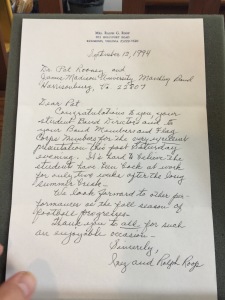 September 12, 1994
Dr. Pat Rooney and
James Madison University Marching Band
Harrisonburg, VA 22807
Dear Pat
Congratulations to you, your
student Band Directors and to
your Band Members and Flag
Corps Members for the very excellent
presentation this past Saturday
evening. It's hard to believe the
students have been back at work
for only two weeks after the long
summer break.
We look forward to other per-
formances as the fall season of
football progresses.
Thank you to all for such
an enjoyable occasion.
Sincerely,
Gay and Ralph Roop